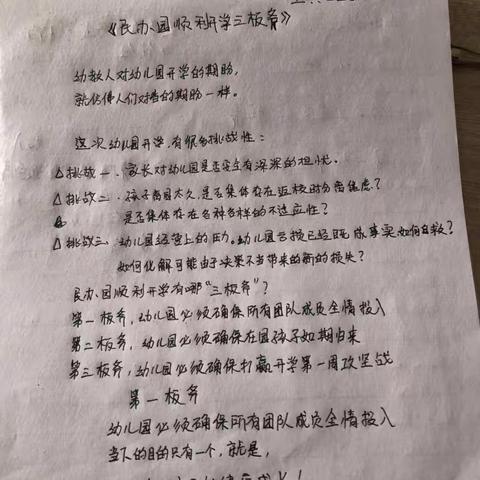 《民办园顺利开学三板斧》
幼教人对幼儿园开学的期盼，
就仿佛人们对春的期盼一样。
这次幼儿园开学，有很多挑战性：
△挑战一、家长对幼儿园是否安全有深深的担忧。
△挑战二、孩子离园太久，是否集体存在返校时分离焦虑？
是否集体存在各种各样的不适应性？
△挑战三、幼儿园经营上的压力。幼儿园亏损已经既成事实如何自救？
如何化解可能由于决策不当带来的新的损失？
民办园顺利开学有哪“三板斧”？
第一板斧，幼儿园必须确保所有团队成员全情投入
第二板斧，幼儿园必须确保在园孩子如期归来
第三板斧，幼儿园必须确保打赢开学第一周攻坚战
第一板斧
幼儿园必须确保所有团队成员全情投入
当下的目的只有一个，就是，